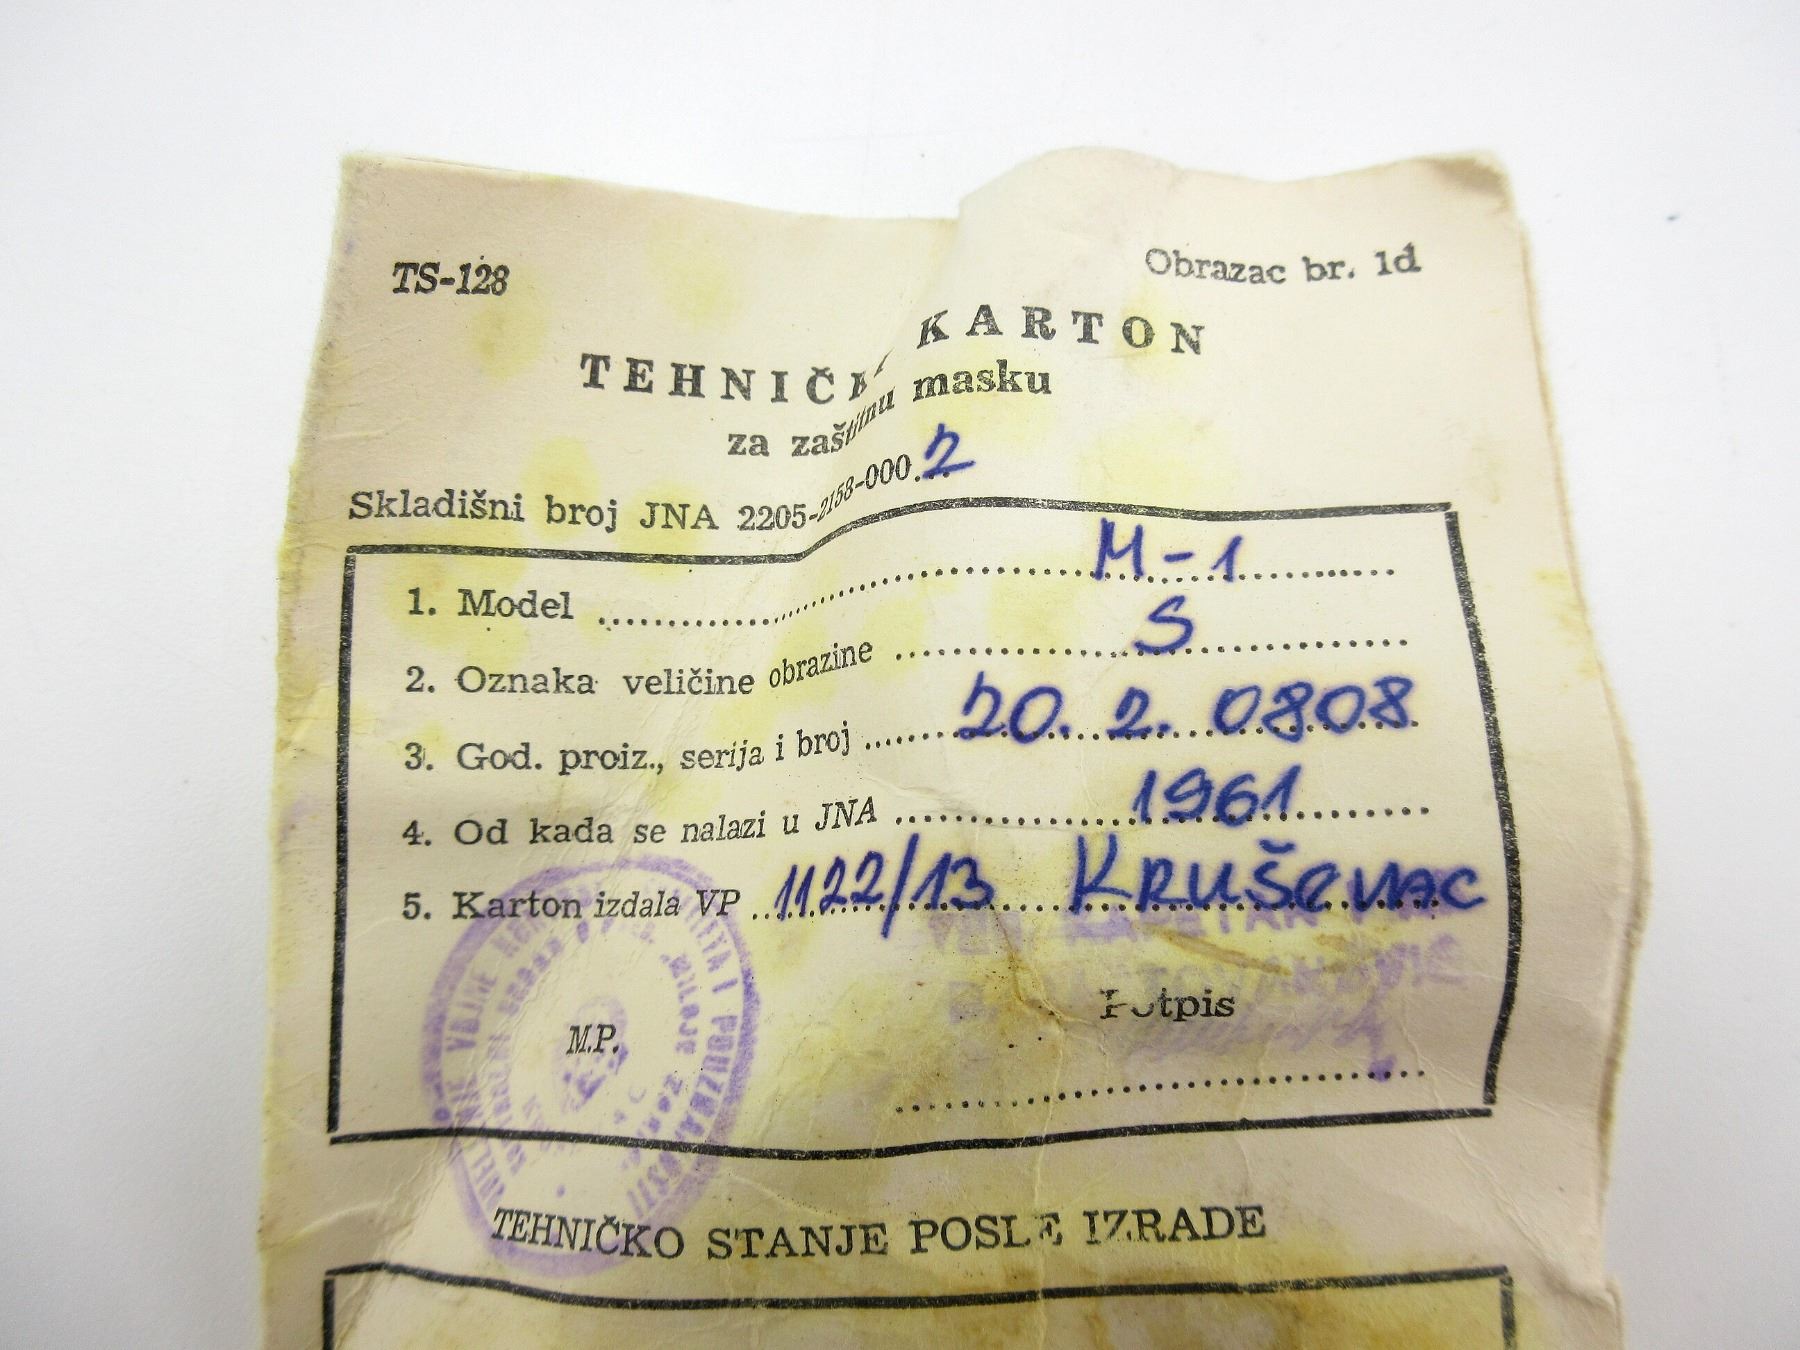 TS-128
Obrazac br. 1d
TEHNIČKI KARTON
za zaštitnu masku
Skladišni broj JNA 2205-2158-000.2
1. Model M-1
2. Oznaka veličine obrazine S
3. God. proiz., serija i broj 20. 2. 0808
4. Od kada se nalazi u JNA 1961
5. Karton izdala VP 1122/13 Kruševac
KAPETAN
M.P.
Potpis
TEHNIČKO STANJE POSLE IZRADE